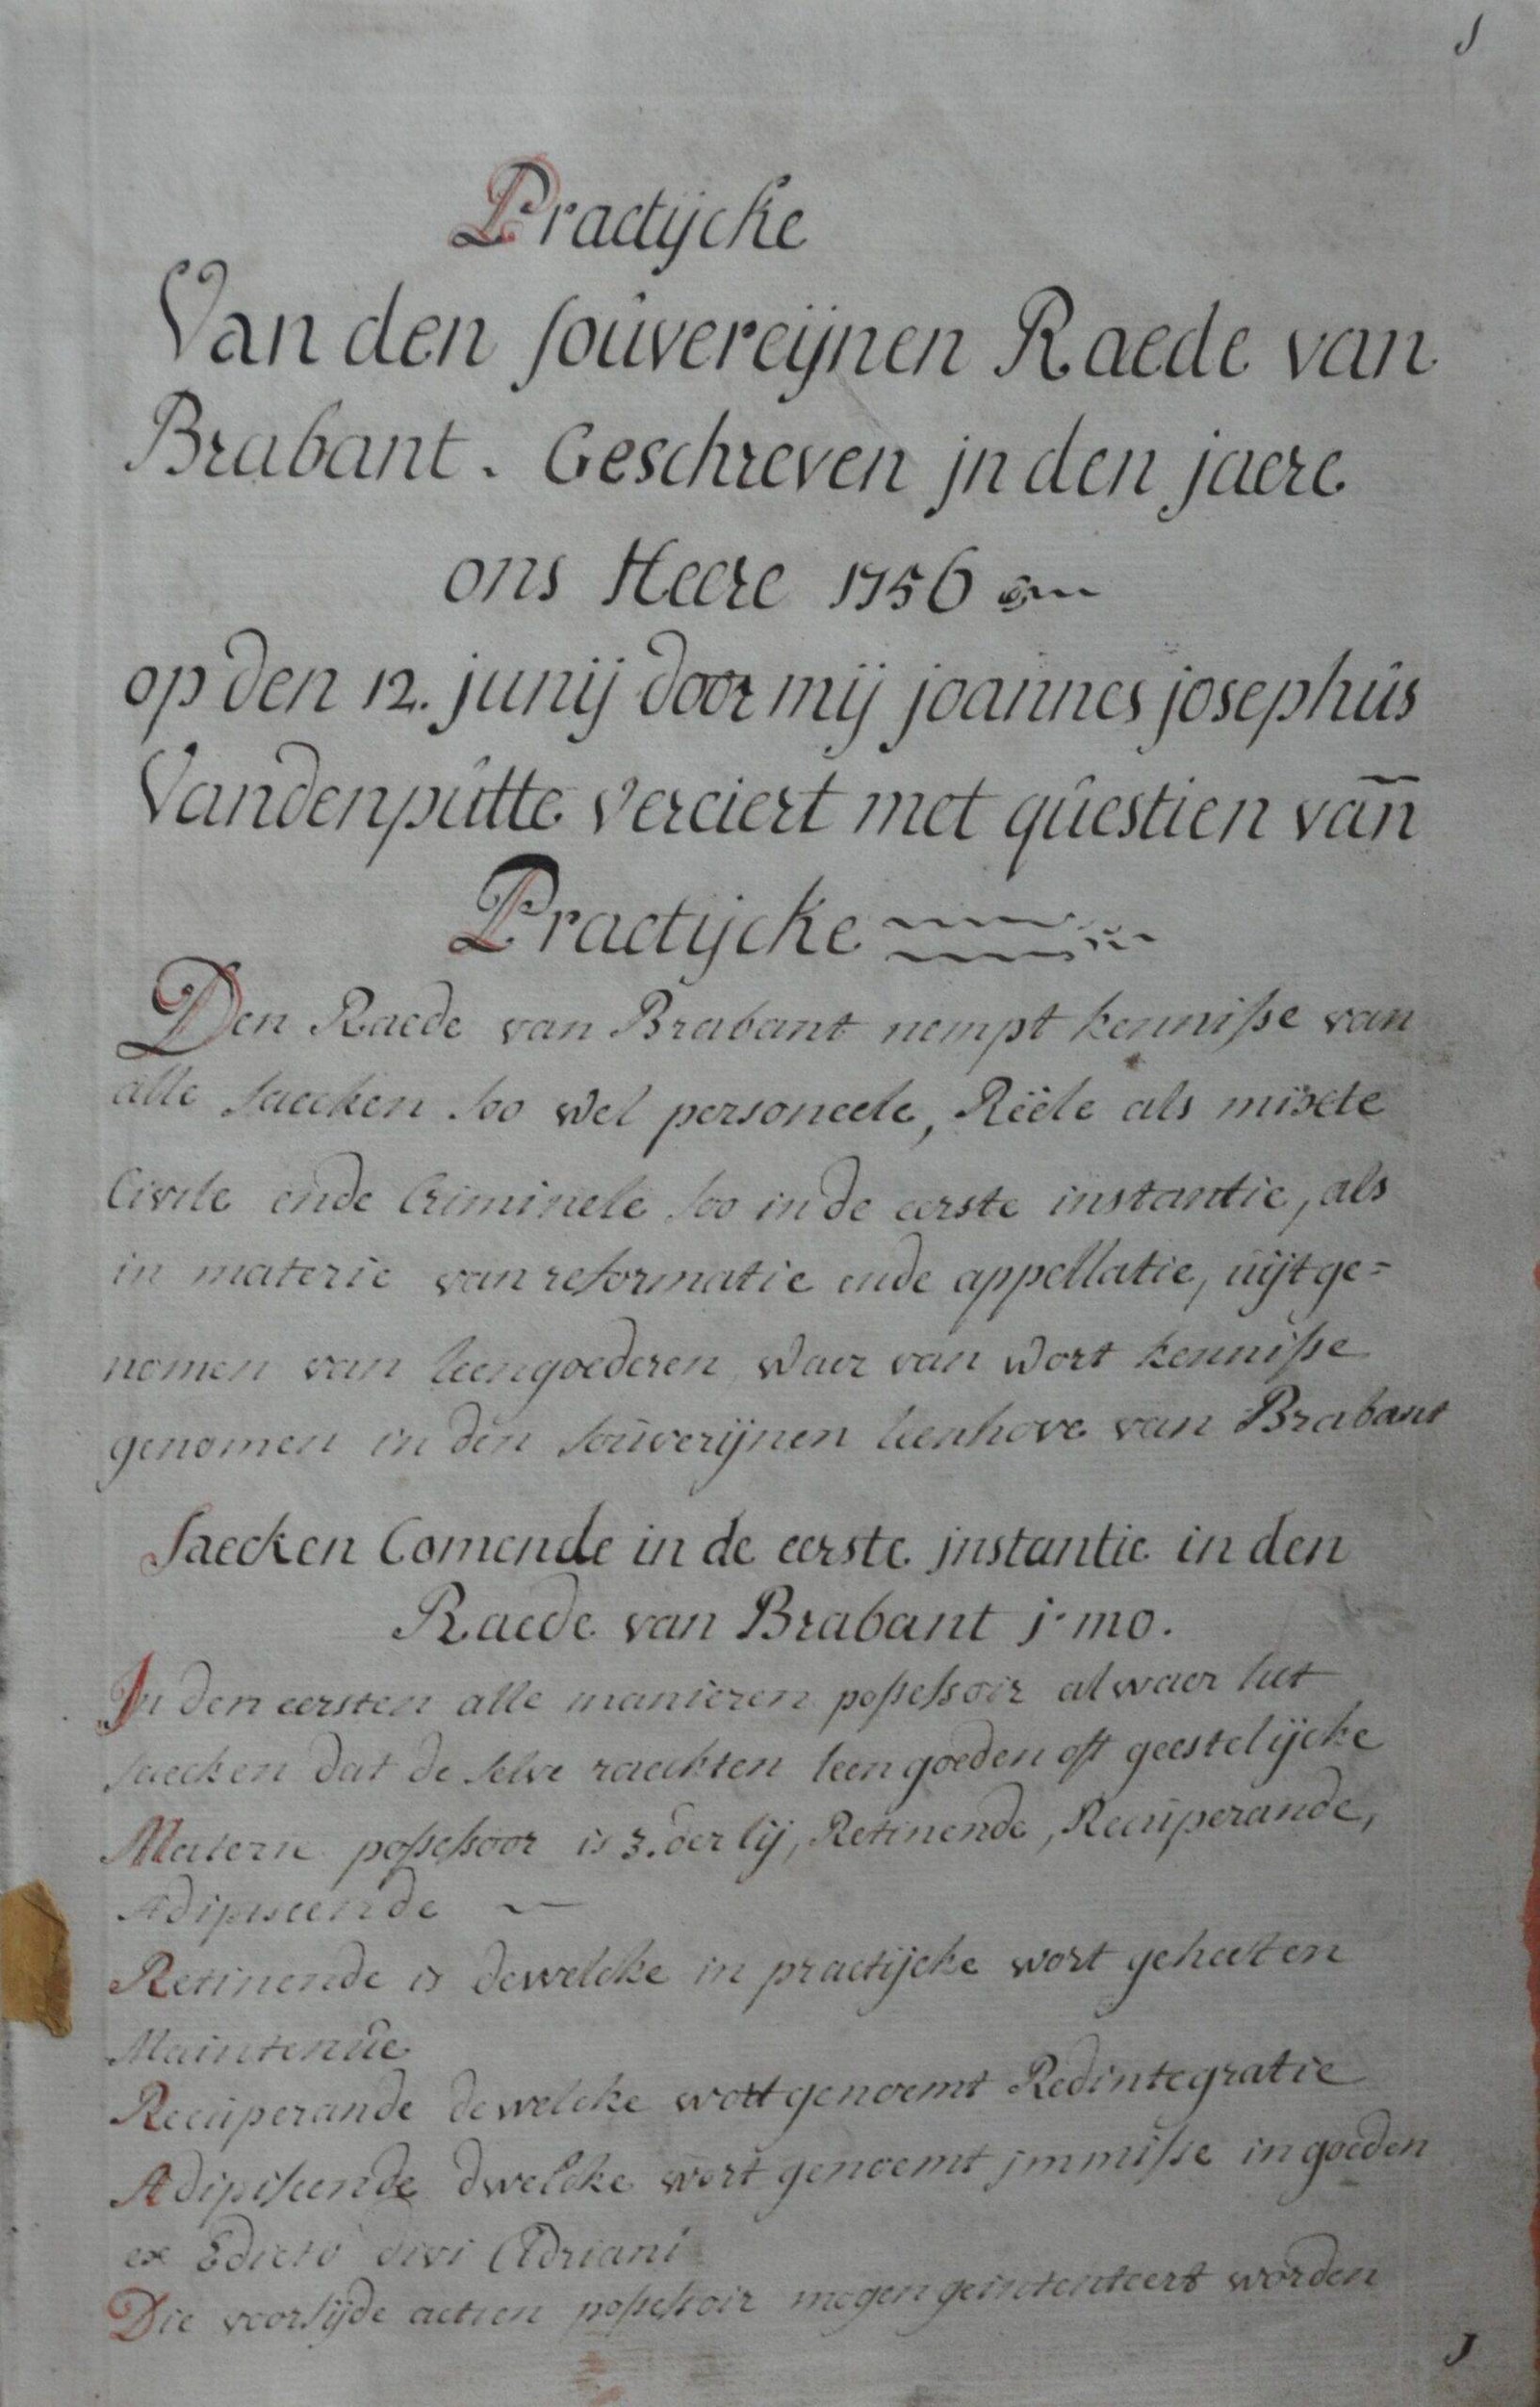 J
Practijcke
Van den soûvereijnen Raede van
Brabant. Geschreven jn den jaere
ons Heere 1756
op den 12. junij door mij joannes josephûs
Vandenpûtte verciert met qûestien vañ
Practijcke
Den Raede van Brabant nempt kennisse van
alle saecken soo wel personeele, Rëele als mixte
Civile ende Criminele soo in de eerste instantie, als
in materie van reformatie ende appellatie, uijtge=
nomen van leengoederen waer van wort kennisse
genomen in den souverijnen leenhove van Brabant
Saecken Comende in de eerste jnstantie in den
Raede van Brabant j.mo.
In den eersten alle manieren possessoir alwaer het
saecken dat de selve raeckten leen goeden oft geestelijcke
Materie possessoor is 3.derlij, Retinende, Recuperande,
Adipiscende
Retinende is dewelcke in practijcke wort geheeten
Maintenûe
Recuperande dewelcke wort genoemt Redintegratie
Adipiscende dwelcke wort genoemt jmmisse in goeden
ex Edicto divi Adriani
Die voorsijde actien possessoir mogen geintenteert worden
J